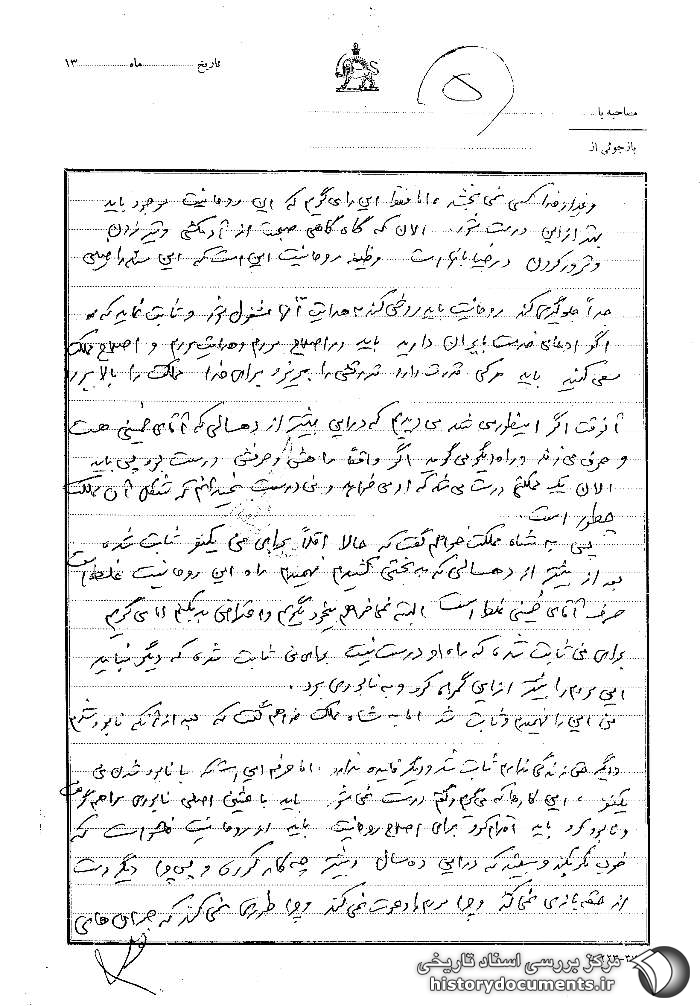 تاریخ ........ ماه ........ ۱۳
۵
مصاحبه با
بازجوئی از
و غیر از خدا کسی نمی بخشد، اما فقط این را می گویم که این روحانیت موجود باید
بهتر از این درست شود. الان که گاه گاهی صحبت از آدمکشی و تیر زدن
و ترور کردن در خیابانها است وظیفه روحانیت این است که این مسئله را خیلی
جداً جلوگیری کند روحانیت باید روشن کند به هدایت آنها مشغول شود و ثابت نماید که
اگر ادعای خدمت به ایران دارید باید در اصلاح مردم و هدایت مردم و اصلاح مملکت
سعی کنید باید هر کی قدرت دارد قدرتش را بریزد برای خدا مملکت را بالا ببرد
آنوقت اگر اینطوری شد می دیدم که در این بیشتر از ده سالی که آقای خمینی هست
و حرف می زند و راه دیگر می گوید اگر واقعاً راهش و حرفش درست بود پس باید
الان یک مملکتی درست می شد که او می خواهد و من درست نمیدانم که شکل آن مملکت
چطور است.
پس به شاه مملکت خواهم گفت که حالا اقلاً برای من یکنفر ثابت شده
بعد از بیشتر از ده سالی که بدبختی کشیدم فهمیدم راه این روحانیت غلط است
حرف آقای خمینی غلط است البته نمی خواهم بخود بگیرم و اعتراضی بکنم اما می گویم
برای من ثابت شده که راه او درست نیست برای من ثابت شده که دیگر نباید
این مردم را بیشتر از این گمراه کرد و به نابودی برد.
من این را فهمیدم و ثابت شد اما به شاه مملکت خواهم گفت که بعد از آنکه نابود شدم
و دیگر من زندگی ندارم ثابت شد و دیگر فایده ندارد. اما حرفم این است که با نابود شدن من
یکنفر، این کارها که می گویم درست نمی شود باید باعثین اصلی نابودی مرا هم گرفت
و نابود کرد باید اقدام کرد برای اصلاح روحانیت باید از روحانیت خواست که
خوب فکر بکند و ببیند که در این ده سال بیشتر چه کار کرده و پس چرا دیگر دست
از حقه بازی نمی کند و چرا مردم را دعوت نمی کند و چرا طوری نمی کند که جوان هایی
مرکز بررسی اسناد تاریخی
historydocuments.ir